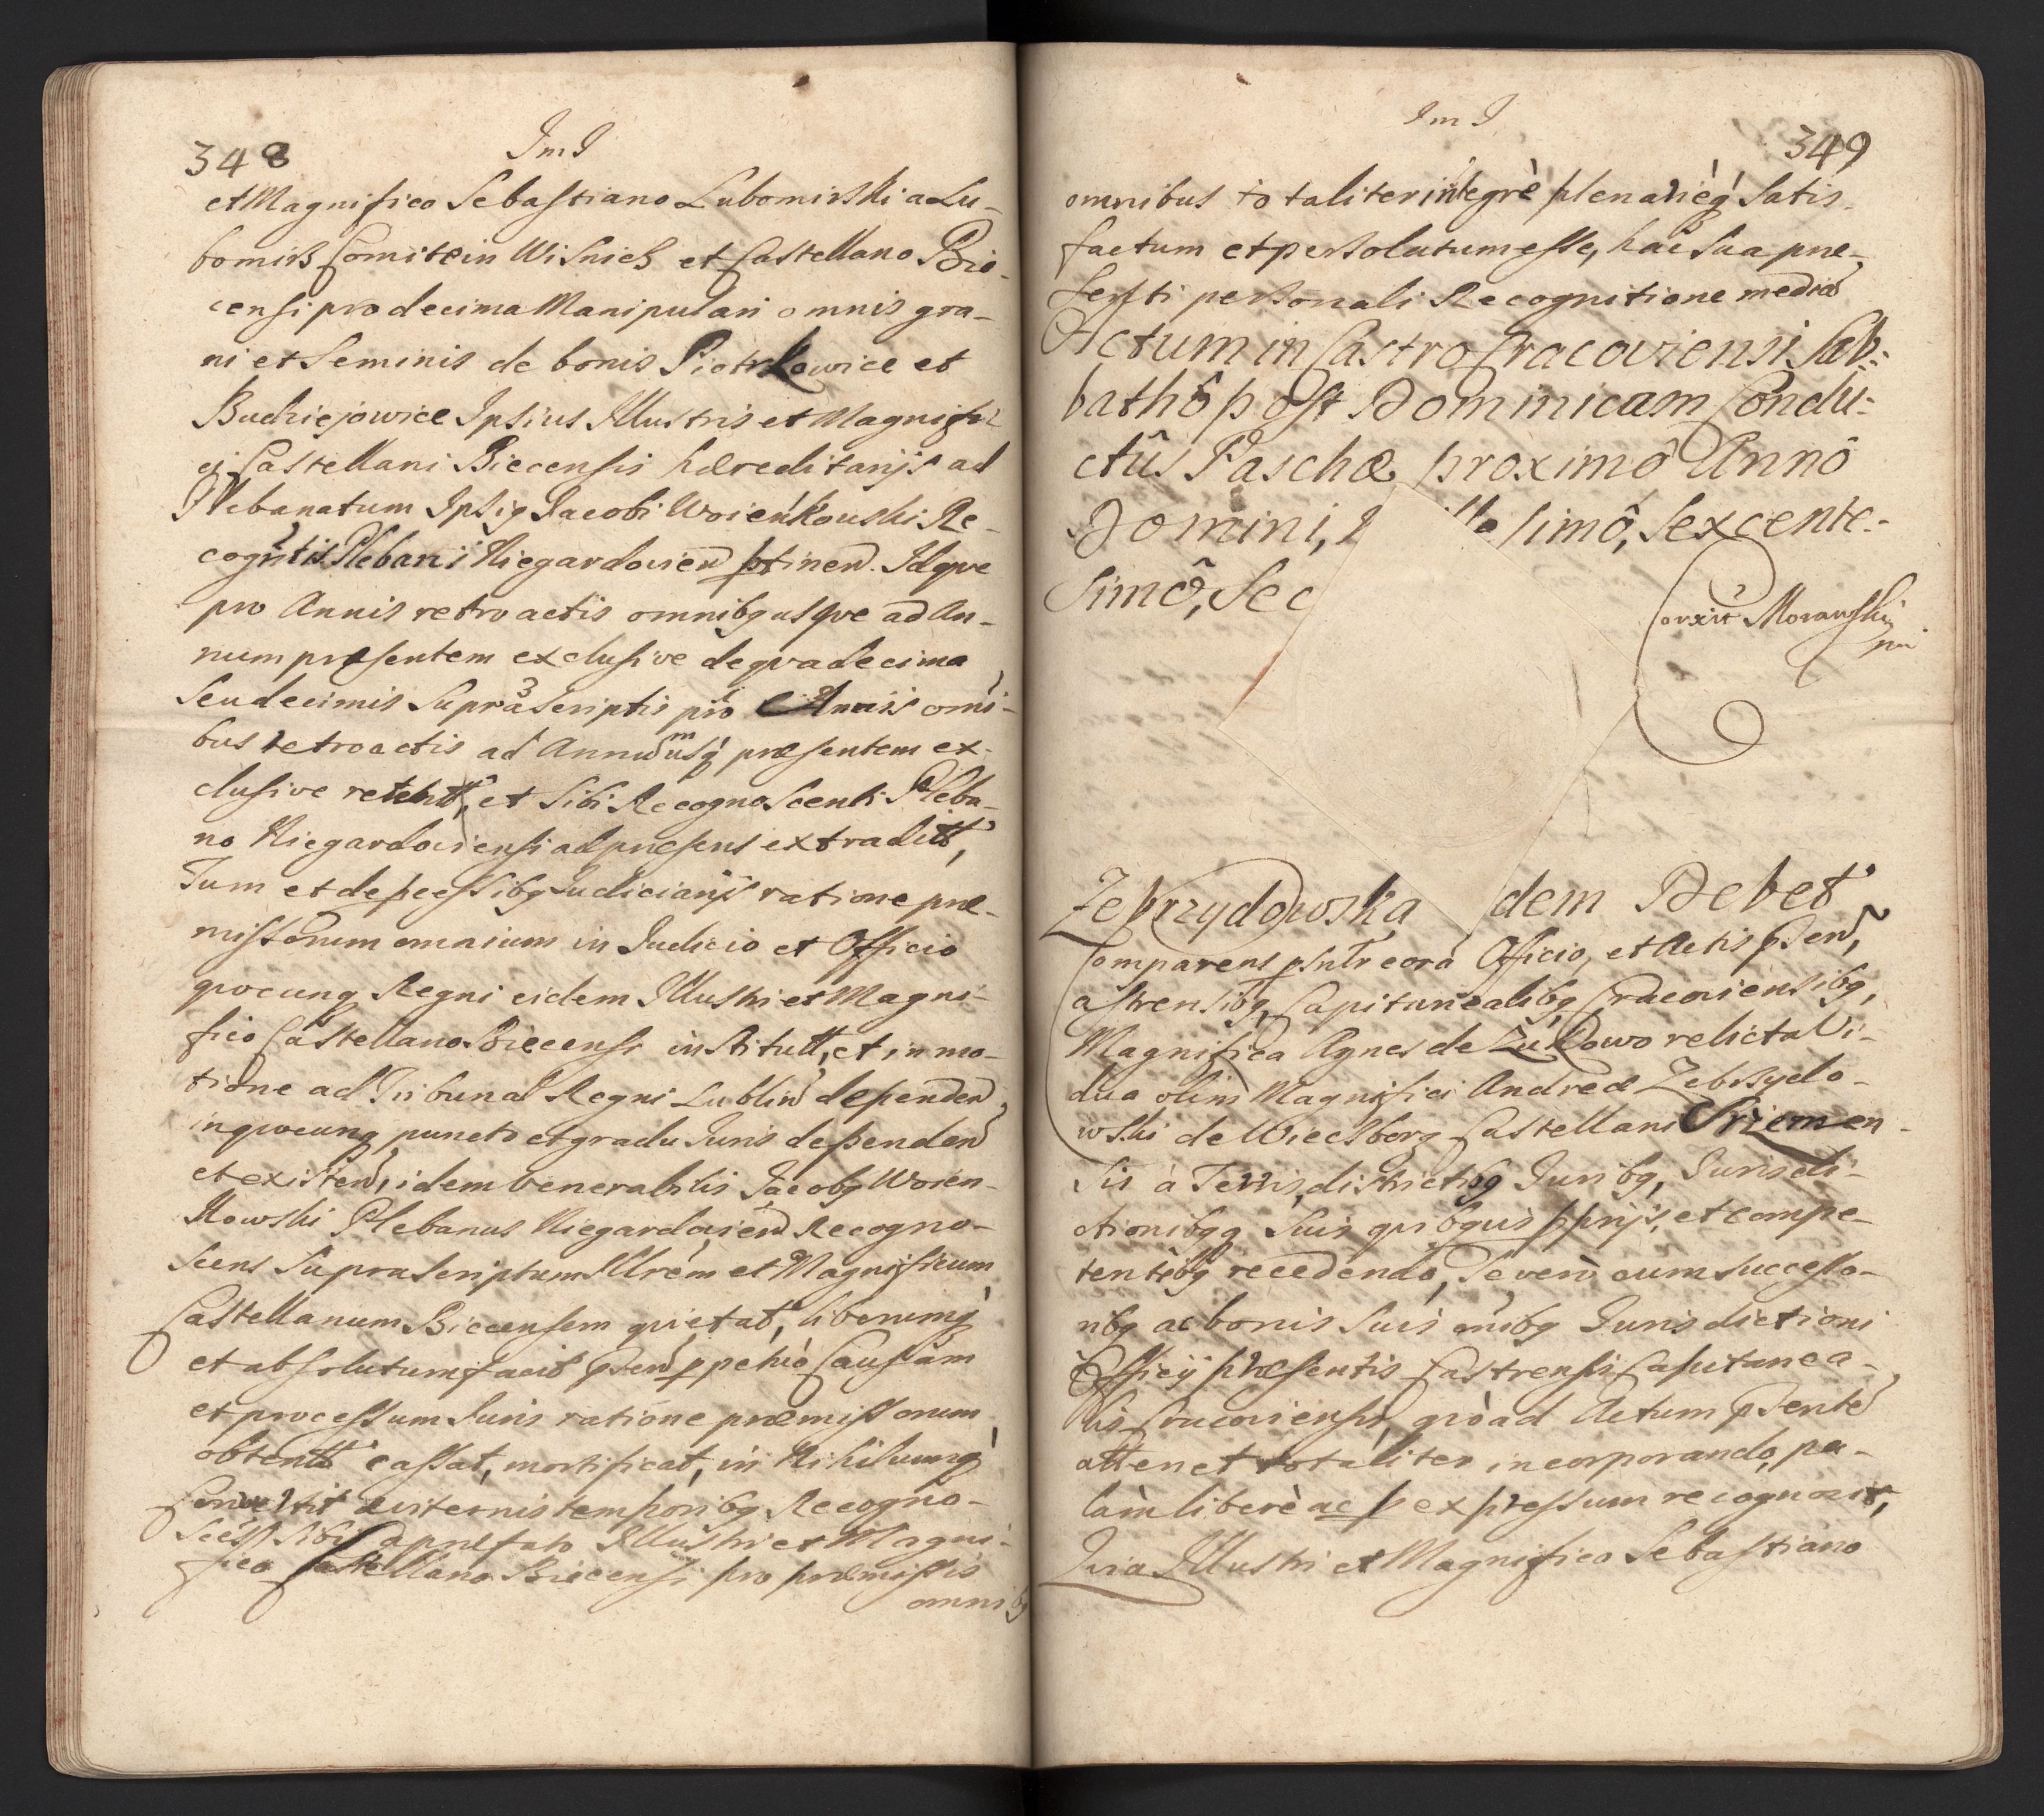 348
ImI
et Magnifico Sebastiano Lubomirski a Lu-
bomirz Comite in Wisnicz et Castellano Bie-
censi pro decima Manipulari omnis gra-
ni et Seminis de bonis Piotrkowice et
Budziejowice Ipsius Illustris et Magnifi-
ci Castellani Biecensis hæreditarijs ad
Plebanatum Ipsiq Jacobi Woieńkowski Re-
cogntis Plebani Niegardovien ptinen. Idqve
pro Annis retroactis omnibq usqve ad An-
num præsentem exclusive de qva decima
Seu decimis Suprascriptis pro Annis omi-
bus retroactis ad Annum usq præsentem ex-
clusive retent, et Sibi Recognoscenti Pleba-
no Niegardoviensi ad præsens extradit,
Tum et de pcessibq Judiciarijs ratione præ-
missorum omnium in Judicio et Officio
qvocunq Regni eidem Illustri et Magni-
fico Castellano Biecensi institutt, et in mo-
tione ad Tribunal Regni Lublin dependen,
in qvocunq puncto et gradu Juris dependen
et existen, idem Venerabilis Jacobq Woien-
kowski Plebanus Niegardovien Recogno-
scens Suprascriptum Illrem et Magnificum
Castellanum Biecensem qvietat, liberumq
et absolutum facit psen ppetuo Causam
et processum Juris ratione præmissorum
obtentt cassat, mortificat, in Nihilumq
Convertit æviternis temporibq Recogno-
Scēs Sibi a præfato Illustri et Magni-
fico Castellano Biecensi pro præmissis
omnibq
ImI
349
omnibus totaliter integrè plenarièq Satis-
factum et persolutum esse, hac Sua præ-
senti personali Recognitione mediā
Actum in Castro Cracoviensi Sab-
bathô post Dominicam Condu-
ctûs Paschæ proximô Annô
Domini, llesimô, Sexcente-
Simô, Sec
Corxit Morawski
mp
Zebrzydowska dem Debet
Comparens psnlr corā Officio, et Actis psen,
Castrensibq, Capitanealibq Cracoviensibq,
Magnifica Agnes de Zukowo relicta Vi-
dua olim Magnifici Andreæ Zebrzydo-
wski de Wiecsborg Castellani Srzemen-
sis à Terris, districtibq Juribq, Jurisdi-
ctionibqq Suis qvibqvis pprijs, et compe-
tentibq recedendo, Se vero cum successo-
ribq ac bonis Suis omibq Jurisdictioni
Officij præsentis Castrensis Capitanea-
lis Cracoviensis, qvò ad Actum psente
attenet totaliter incorporando, pa-
làm liberè ac p expressum recognovit,
Qvia Illustri et Magnifico Sebastiano